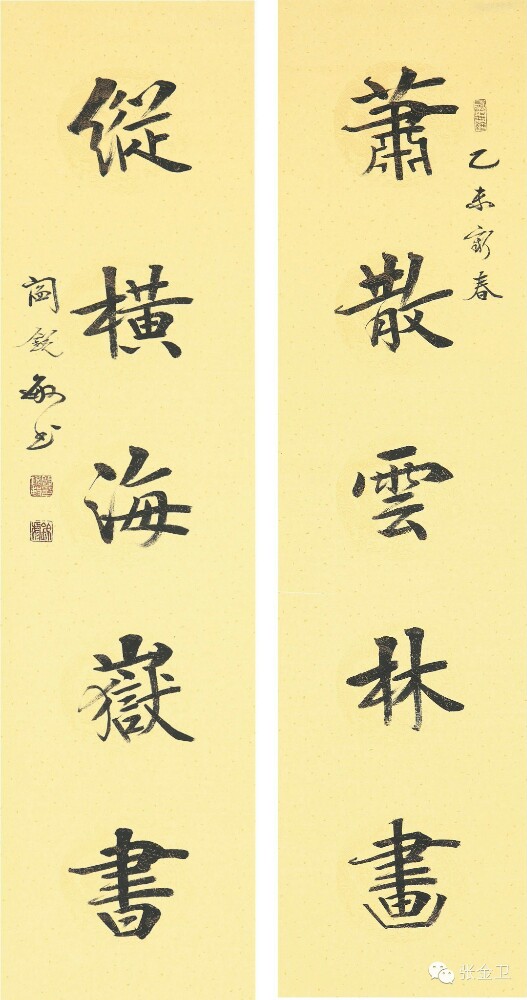 乙未新春
蕭散雲林畫
縱橫海嶽書
閻銳敏书
张金卫